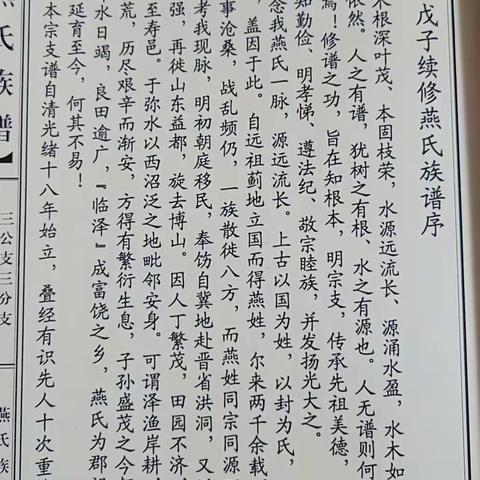 戊子续修燕氏族谱序
木根深叶茂、本固枝荣，水源远流长、源涌水盈，水木如
依然。人之有谱，犹树之有根、水之有源也。人无谱则何
焉！修谱之功，旨在知根本，明宗支，传承先祖美德，
知勤俭、明孝悌、遵法纪、敬宗睦族，并发扬光大之。
念我燕氏一脉，源远流长。上古以国为姓，以封为氏，
，盖因于此。自远祖蓟地立国而得燕姓，尔来两千余载
事沧桑，战乱频仍，一族散徙八方，而燕姓同宗同源
考我现脉，明初朝庭移民，奉饬自冀地赴晋省洪洞，又
强，再徙山东益都，旋去博山。因人丁繁茂，田园不济
至寿邑。于弥水以西沼泛之地毗邻安身。可谓泽渔岸耕
荒，历尽艰辛而渐安，方得有繁衍生息，子孙盛茂之今
水日竭，良田逾广，『临泽』成富饶之乡，燕氏为郡
延育至今，何其不易！
本宗支谱自清光绪十八年始立，叠经有识先人十次重
氏族谱】
三公支三分支
燕氏族